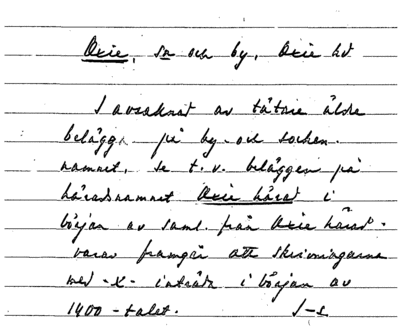 Oxie, sn och by, Oxie hd
I avsaknad av tätare äldre
belägg på by- och socken-
namnet, se t. v. beläggen på
häradsnamnet Oxie härad i
början av saml. från Oxie härad.
varav framgår att skrivningarna
med -x- inträda i början av
1400-talet.